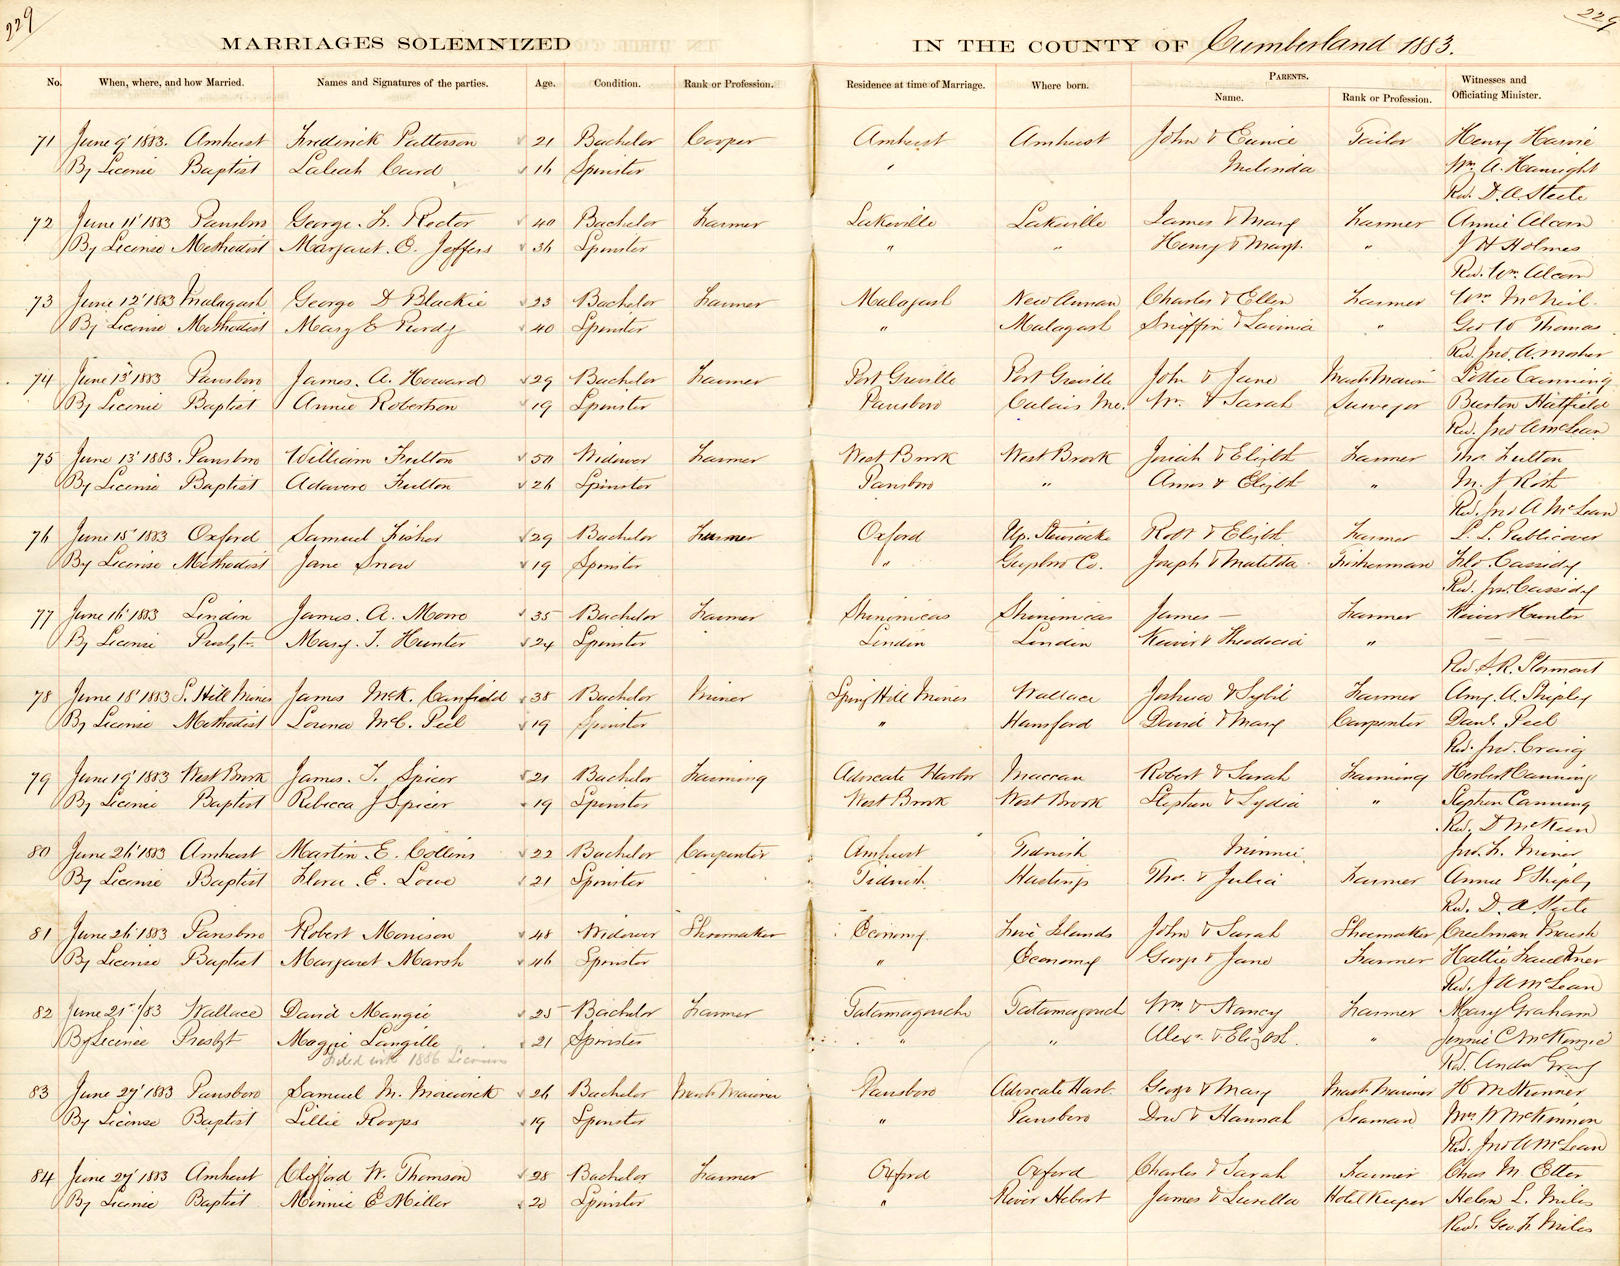 229
229
MARRIAGES SOLEMNIZED IN THE COUNTY OF Cumberland 1883.
No. When, where, and how Married. Names and Signatures of the parties. Age. Condition. Rank or Profession. Residence at time of Marriage. Where born. PARENTS. Witnesses and Officiating Minister.
Name. Rank or Profession.
71 June 9' 1883. Amherst Frederick Patterson 21 Bachelor Cooper Amherst Amherst John & Eunice Tailor Henry Harvie
By License Baptist Laleah Card 16 Spinster " Melinda Wm. A. Hamright
Rev. D. A. Steele
72 June 11' 1883 Parrsboro George. F. Rector 40 Bachelor Farmer Lakeville Lakeville James & Mary Farmer Annie Alcorn
By License Methodist Margaret. O. Jeffers 36 Spinster " " Henry & Margt. " J H Holmes
Rev. Wm. Alcorn
73 June 12' 1883 Malagash George D Blackie 23 Bachelor Farmer Malagash New Annan Charles & Ellen Farmer Wm McNeil.
By License Methodist Mary E Purdy 40 Spinster " Malagash Sniffin & Lavinia " Geo W Thomas
Rev. Jno. A. Mosher
74 June 13' 1883 Parrsboro James. A. Howard 29 Bachelor Farmer Port Greville Port Greville John & Jane Mast Marin Lottie Canning
By License Baptist Annie Robertson 19 Spinster Parrsboro Calais Me. Wm. & Sarah Surveyor Burton Hatfield
Rev. Jno A McLean
75 June 13' 1883. Parrsboro William Fulton 50 Widower Farmer West Brook West Brook Josiah & Elizbth Farmer Thos Fulton
By License Baptist Adavere Fulton 26 Spinster Parrsboro " Amos & Elizbth " M. J Roth
Rev. Jno A McLean
76 June 15' 1883 Oxford Samuel Fisher 29 Bachelor Farmer Oxford Up. Stewiacke Robt & Elizbt. Farmer L. L. Publicover
By License Methodist Jane Snow 19 Spinster " Guysbro Co. Joseph & Matilda Fisherman Flo. Cassidy
Rev. Jno. Cassidy
77 June 16' 1883 Linden James. A. Moore 35 Bachelor Farmer Shinimicas Shinimicas James — Farmer Keiver Hunter
By License Presbytn. Mary. T. Hunter 24 Spinster Linden Linden Keiver & Theodocia " — —
Rev. S. R. Stormont
78 June 18' 1883 S. Hill Mines James McK. Canfield 38 Bachelor Miner Spring Hill Mines Wallace Joshua & Sybil Farmer Amy. A. Shipley
By License Methodist Lorena McC. Peel 19 Spinster " Hansford David & Mary Carpenter Danl. Peel
Rev. Jno. Craig
79 June 19' 1883 West Brook James. T. Spicer 21 Bachelor Farming Advocate Harbor Maccan Robert & Sarah Farming Herbert Canning
By License Baptist Rebecca J Spicer 19 Spinster West Brook West Brook Stephen & Lydia " Stephen Canning
Rev. D McKeen
80 June 26' 1883 Amherst Martin. E. Collins 22 Bachelor Carpenter Amherst Tidnish Minnie. Jno. F. Miner
By License Baptist Flora. E. Lowe 21 Spinster Tidnish. Hastings Thos. & Julia Farmer Annie E Shiply
Rev. D. A. Steele
81 June 26' 1883 Parrsboro Robert Morrison 48 Widower Shoemaker Economy Five Islands John & Sarah Shoemaker Creelman Marsh
By License Baptist Margaret Marsh 46 Spinster " Economy George & Jane Farmer Hattie Faulkner
Rev. J A McLean
82 June 25' /83 Wallace David Mangie 25 Bachelor Farmer Tatamagouche Tatamagouch Wm. & Nancy Farmer Mary Graham
By License Presbyt Maggie Langille 21 Spinster " " Alexr. & Elizbt. " Jennie C McKenzie
Filed with 1886 Licenses Rev. Andw Gray
83 June 27' 1883 Parrsboro Samuel M. Merwick 26 Bachelor Mast Mariner Parrsboro Advocate Harb. George & Mary Mast Mariner H McKenner
By License Baptist Lillie Roops 19 Spinster " Parrsboro Dow & Hannah Seaman Mrs W McKinnon
Rev. Jno A McLean
84 June 27' 1883 Amherst Clifford W. Thomson 28 Bachelor Farmer Oxford Oxford Charles & Sarah Farmer Chas M. Etter
By License Baptist Minnie E Miller 20 Spinster " River Hebert James & Lurilla Hotel Keeper Helen L. Miles
Rev. Geo. F. Miles